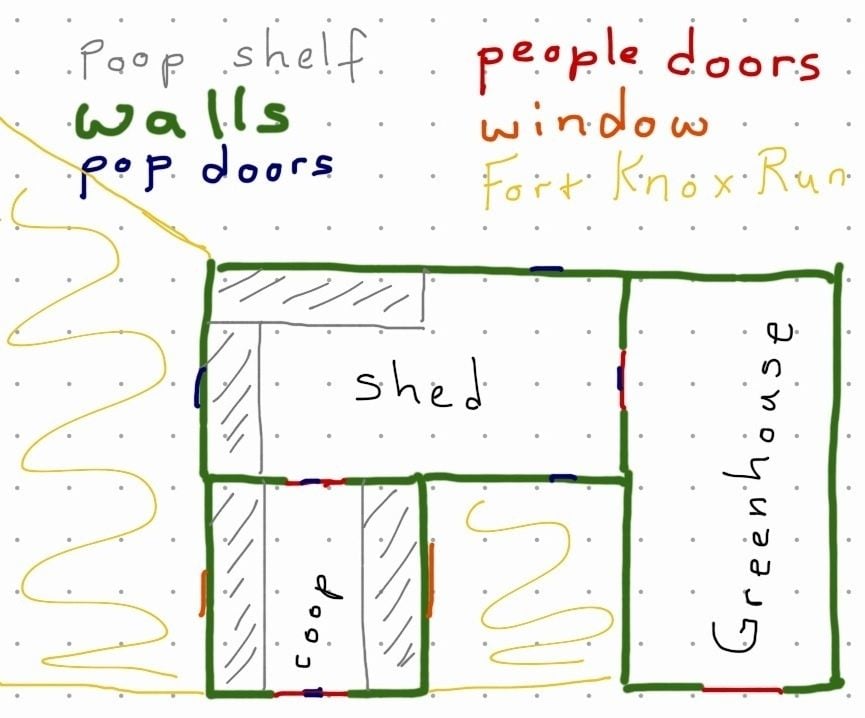 Poop shelf
walls
pop doors
people doors
window
Fort Knox Run
shed
coop
Greenhouse